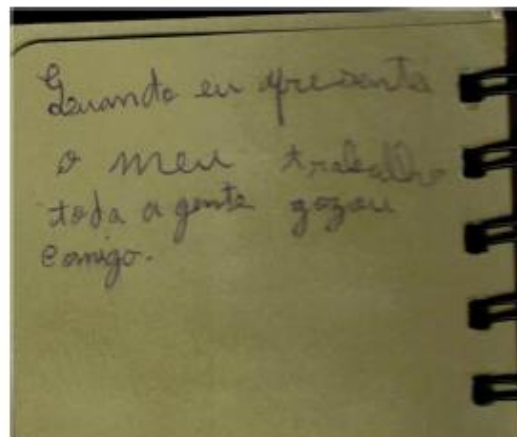 Quando eu apresenta
o meu trabalho
toda a gente gozou
comigo.